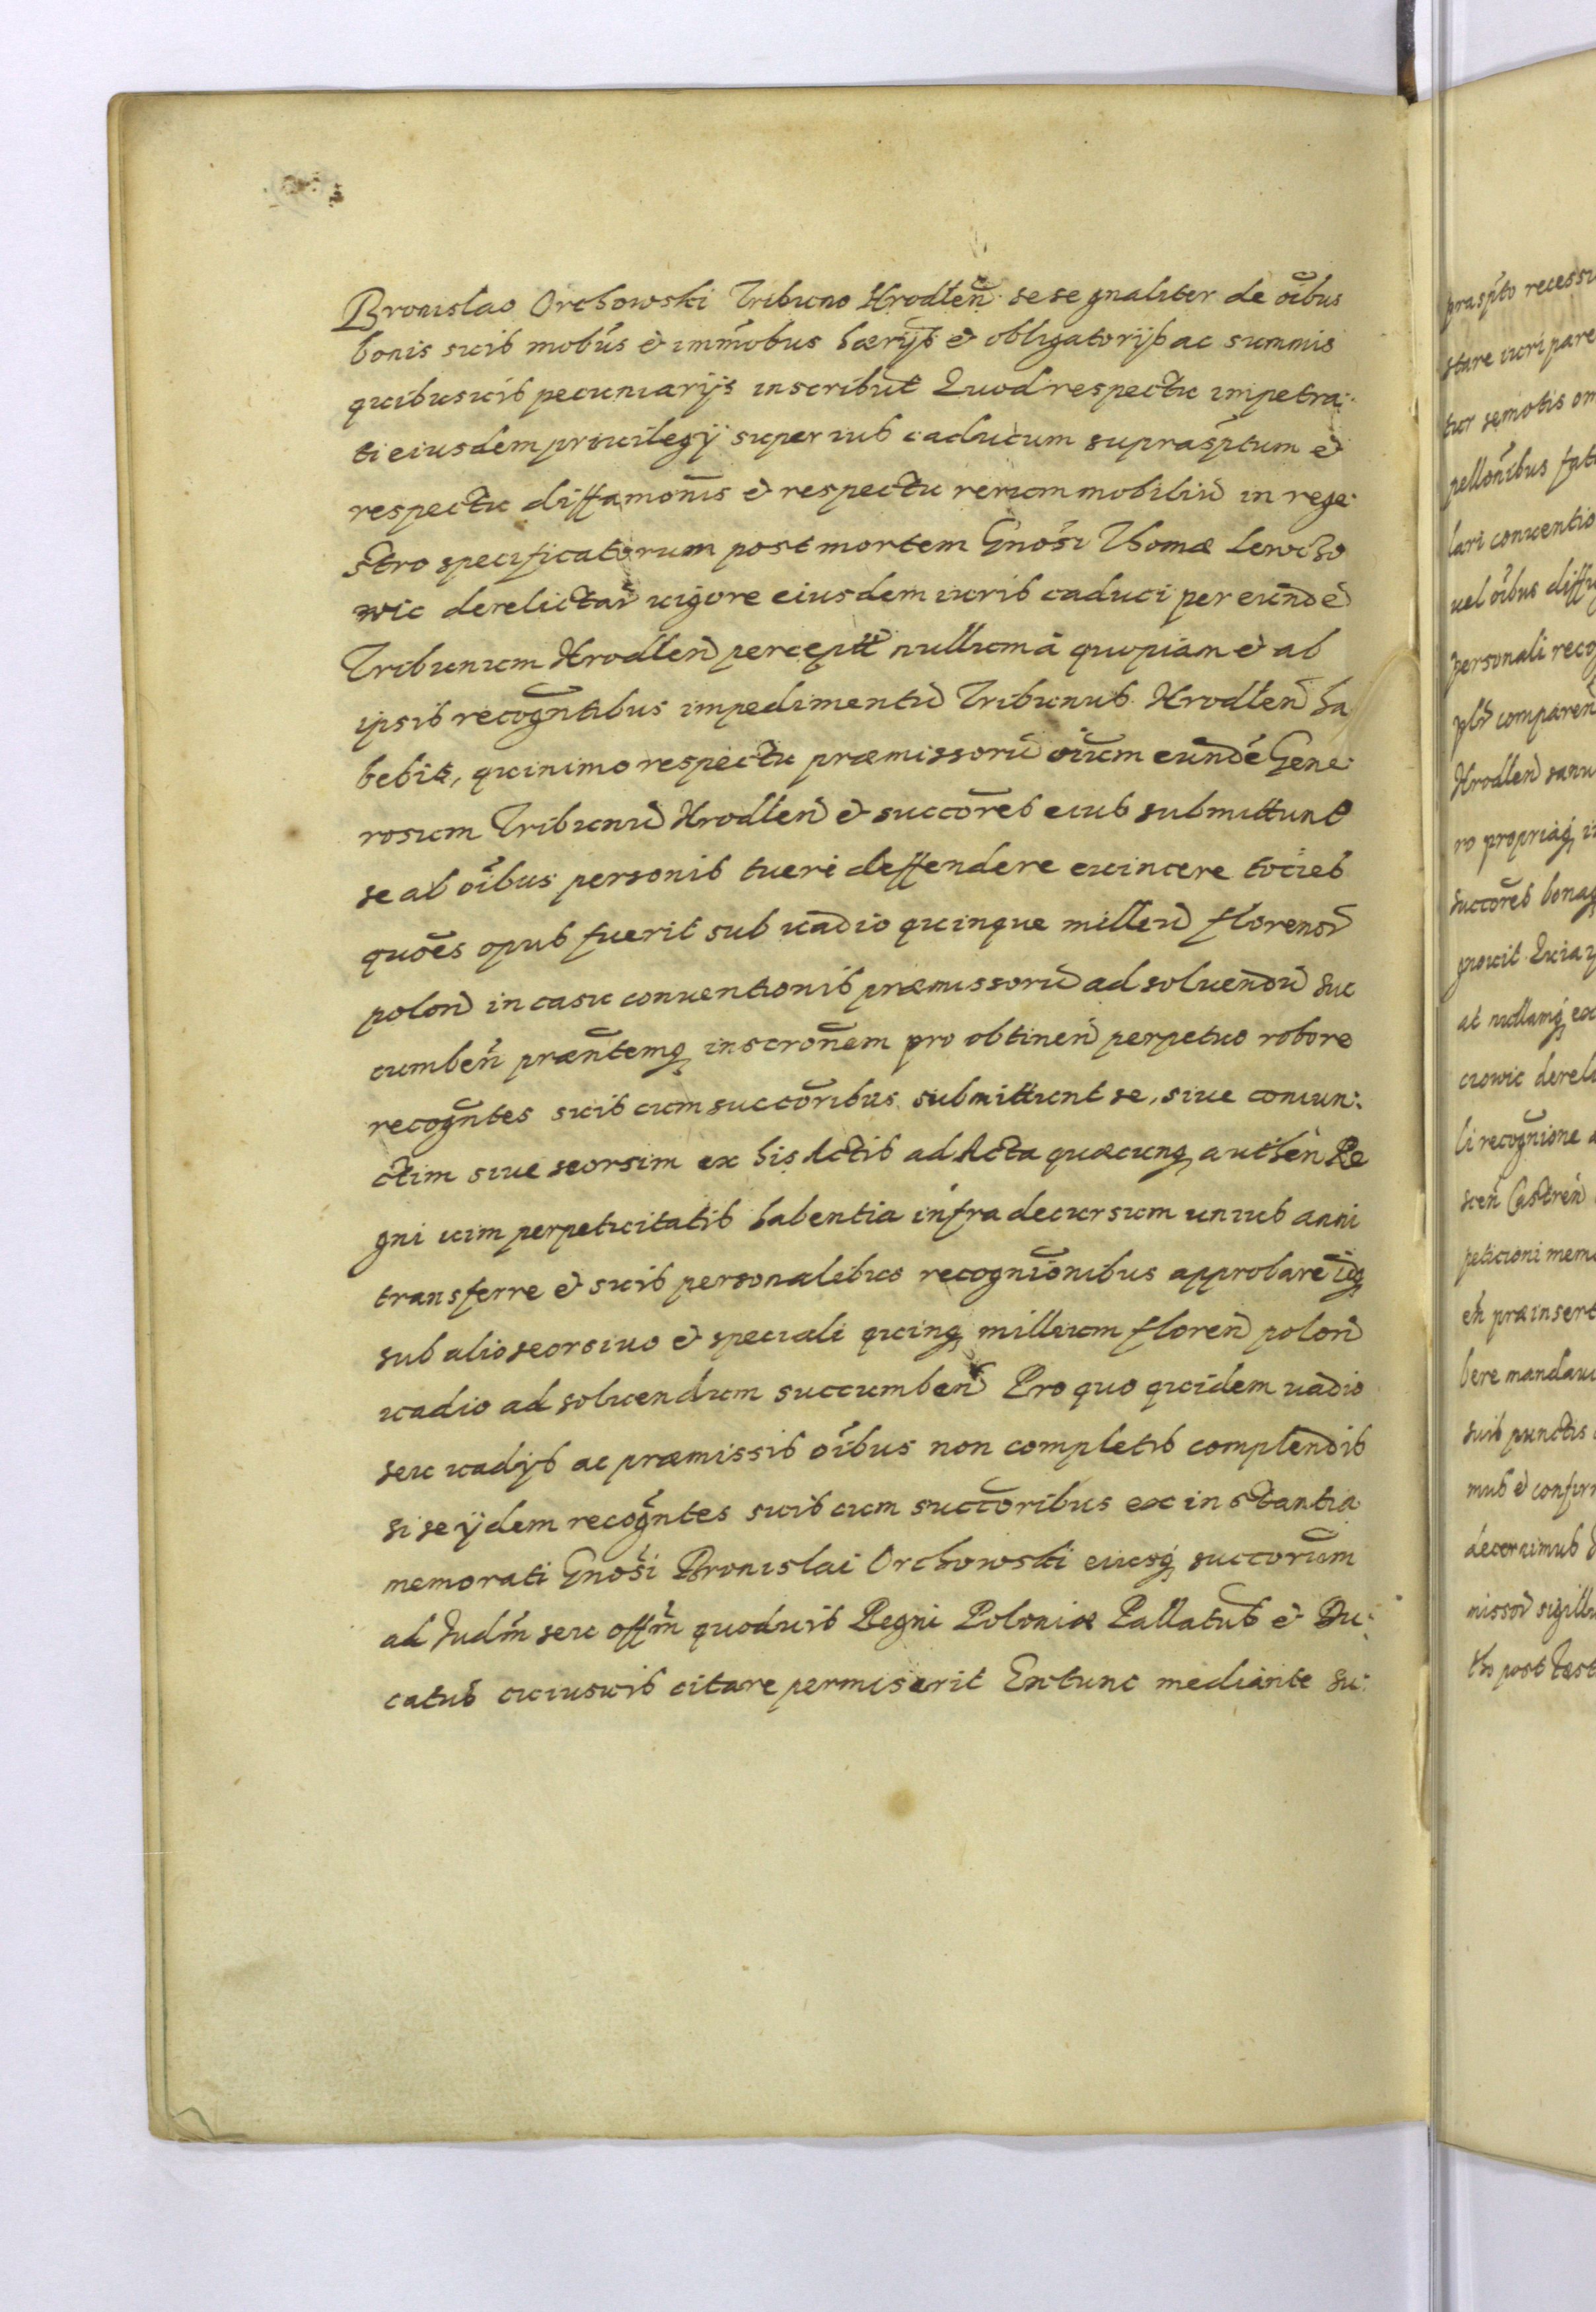 Bronislao Orchowski Tribuno Hrodłeñ sese gnaliter de oĩbus
bonis suis mobũs & immobus hærijs & obligatorijs ac summis
quibusuis pecuniarijs inscribut Quod respectu impetra:
ti eiusdem priuilegÿ super ius caducum suprasptum &
respectu diffamonis & respectu rerum mobiliũ in rege:
stro specificatorum post mortem Gnosi Thomæ Lewcho
wic derelictar̃ uigore eiusdem iuris caduci per eundẽ
Tribunum Hrodłeñ percept nullum a quopiam & ab
ipsis recogñtibus impedimentũ Tribunus Hrodłeñ ha
bebit, quinimo respectu præmissorũ oĩum eundẽ Gene:
rosum Tribunũ Hrodłeñ & succores eius submittunt
se ab oĩbus personis tueri deffendere euincere tocies
quoẽs opus fuerit sub uadio quinque milleñ florenoř
poloñ in casu conuentionis præmissorũ ad soluendũ suc
cumbeñ præntemq̨ inscronem pro obtineñ perpetuo robore
recogñtes suis cum succoribus submittunt se, siue coniun:
ctim siue seorsim ex his Actis ad Acta quæcunq̨ autheñ Re
gni uim perpetuitatis habentia infra decursum unius anni
transferre & suis personalibus recognionibus approbare idq̨
sub alio seorsiuo & speciali quinq̨ millium floreñ poloñ
uadio ad soluendum succumbeñ Pro quo quidem uadio
seu uadijs ac præmissis oĩbus non completis complendis
si se ijdem recogñtes suis cum succoribus ex instantia
memorati Gnosi Bronislai Orchowski eiusq̨ succorum
ad Judm̃ seu offm̃ quoduis Regni Poloniæ Pallatus & Du:
catus cuiusuis citare permiserit Extunc mediante su:
præsp̃to recessu
stare iuri pare
tur semotis om
lari conuentio
uel oĩbus diffu
personali reco
Hrodłeñ sanu
ro propriaq̨ i
succores bonaq̨
at nullamq̨ ex
ciowic derel
li recognione a
sceñ Castreñ
eñ præinsert
bere mandaui
suis punctis
mus & confir
decernimus
tho post